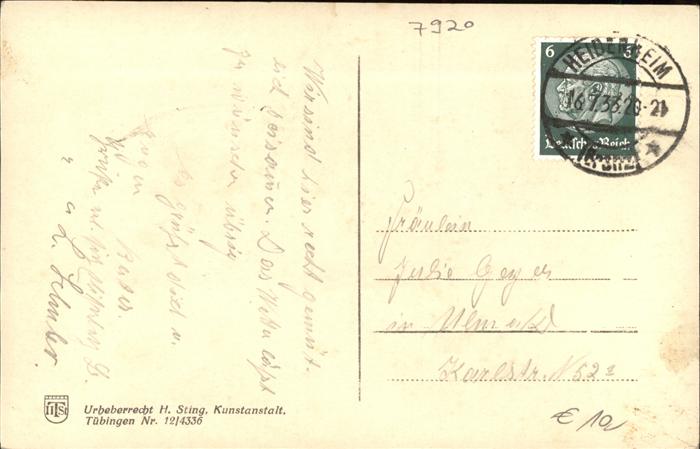 7920
6 6
Deutsches Reich
HEIDENHEIM
16.7.33 20-21
(BRENZ)
Wir sind hier recht gemütl.
und beisammen. Das Wetter läßt
zu wünschen übrig
Es grüßt dich u.
Eugen
Bader.
u. L.
Fräulein
Julie Geyer
in Ulm a/D
Karlstr. N 52
Urheberrecht H. Sting, Kunstanstalt.
Tübingen Nr. 12/4336
€ 10